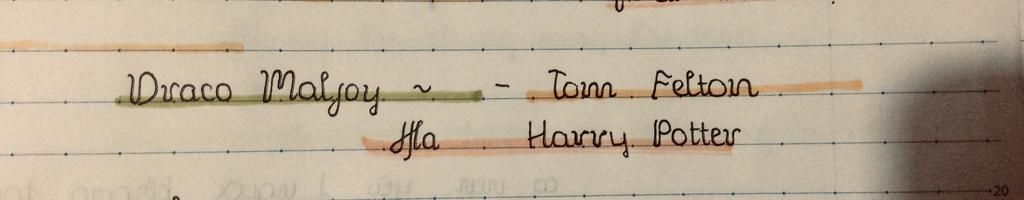 Draco Malfoy ~ - Tom Felton
Harry Potter
20